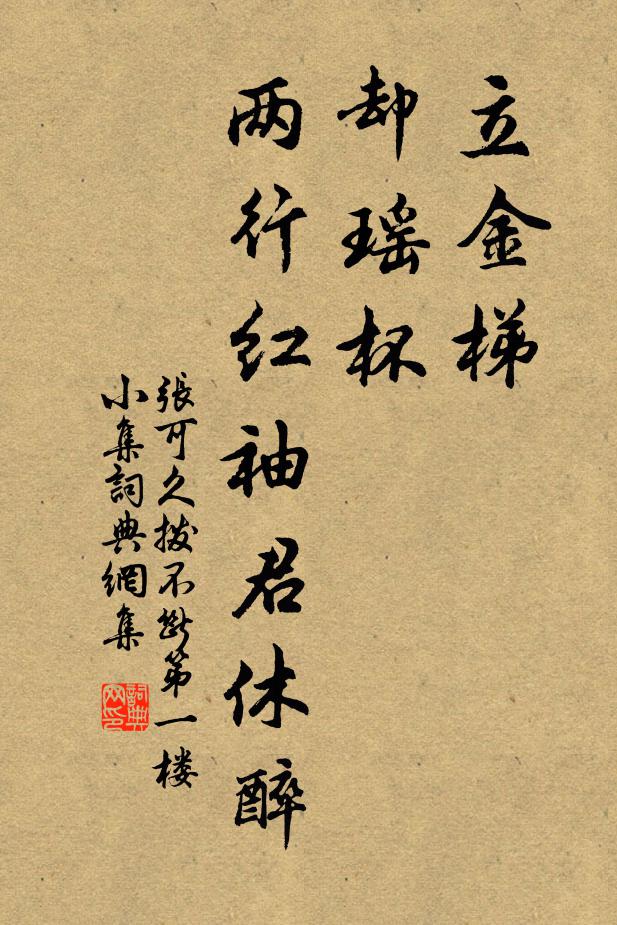 立金梯
却瑶杯
两行红袖君休醉
張可久拨不断第一楼
小集詞典網集
詞典
网印